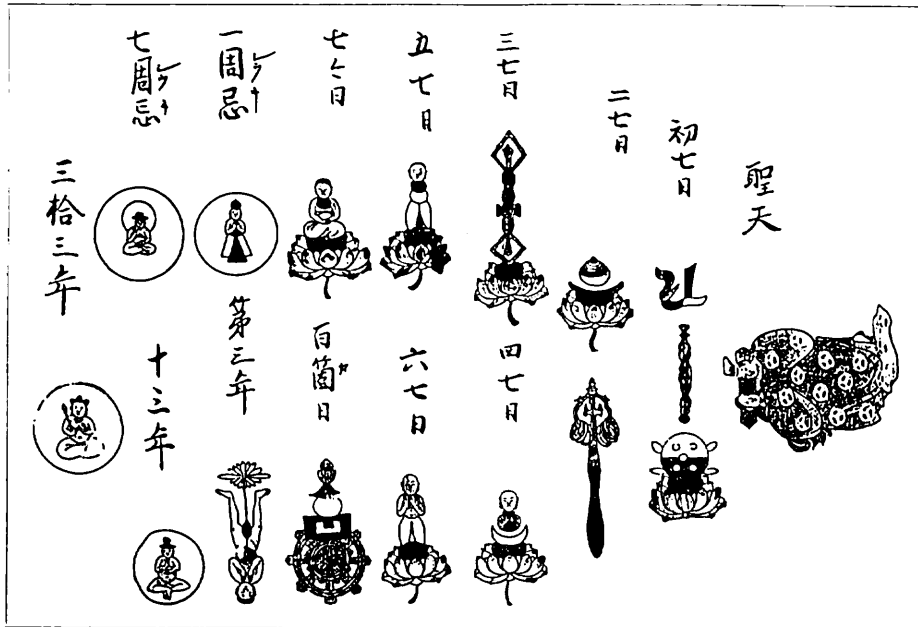 聖天
初七日
二七日
三七日
四七日
五七日
六七日
七々日
百箇日
一周忌
第三年
七周忌
十三年
三拾三年